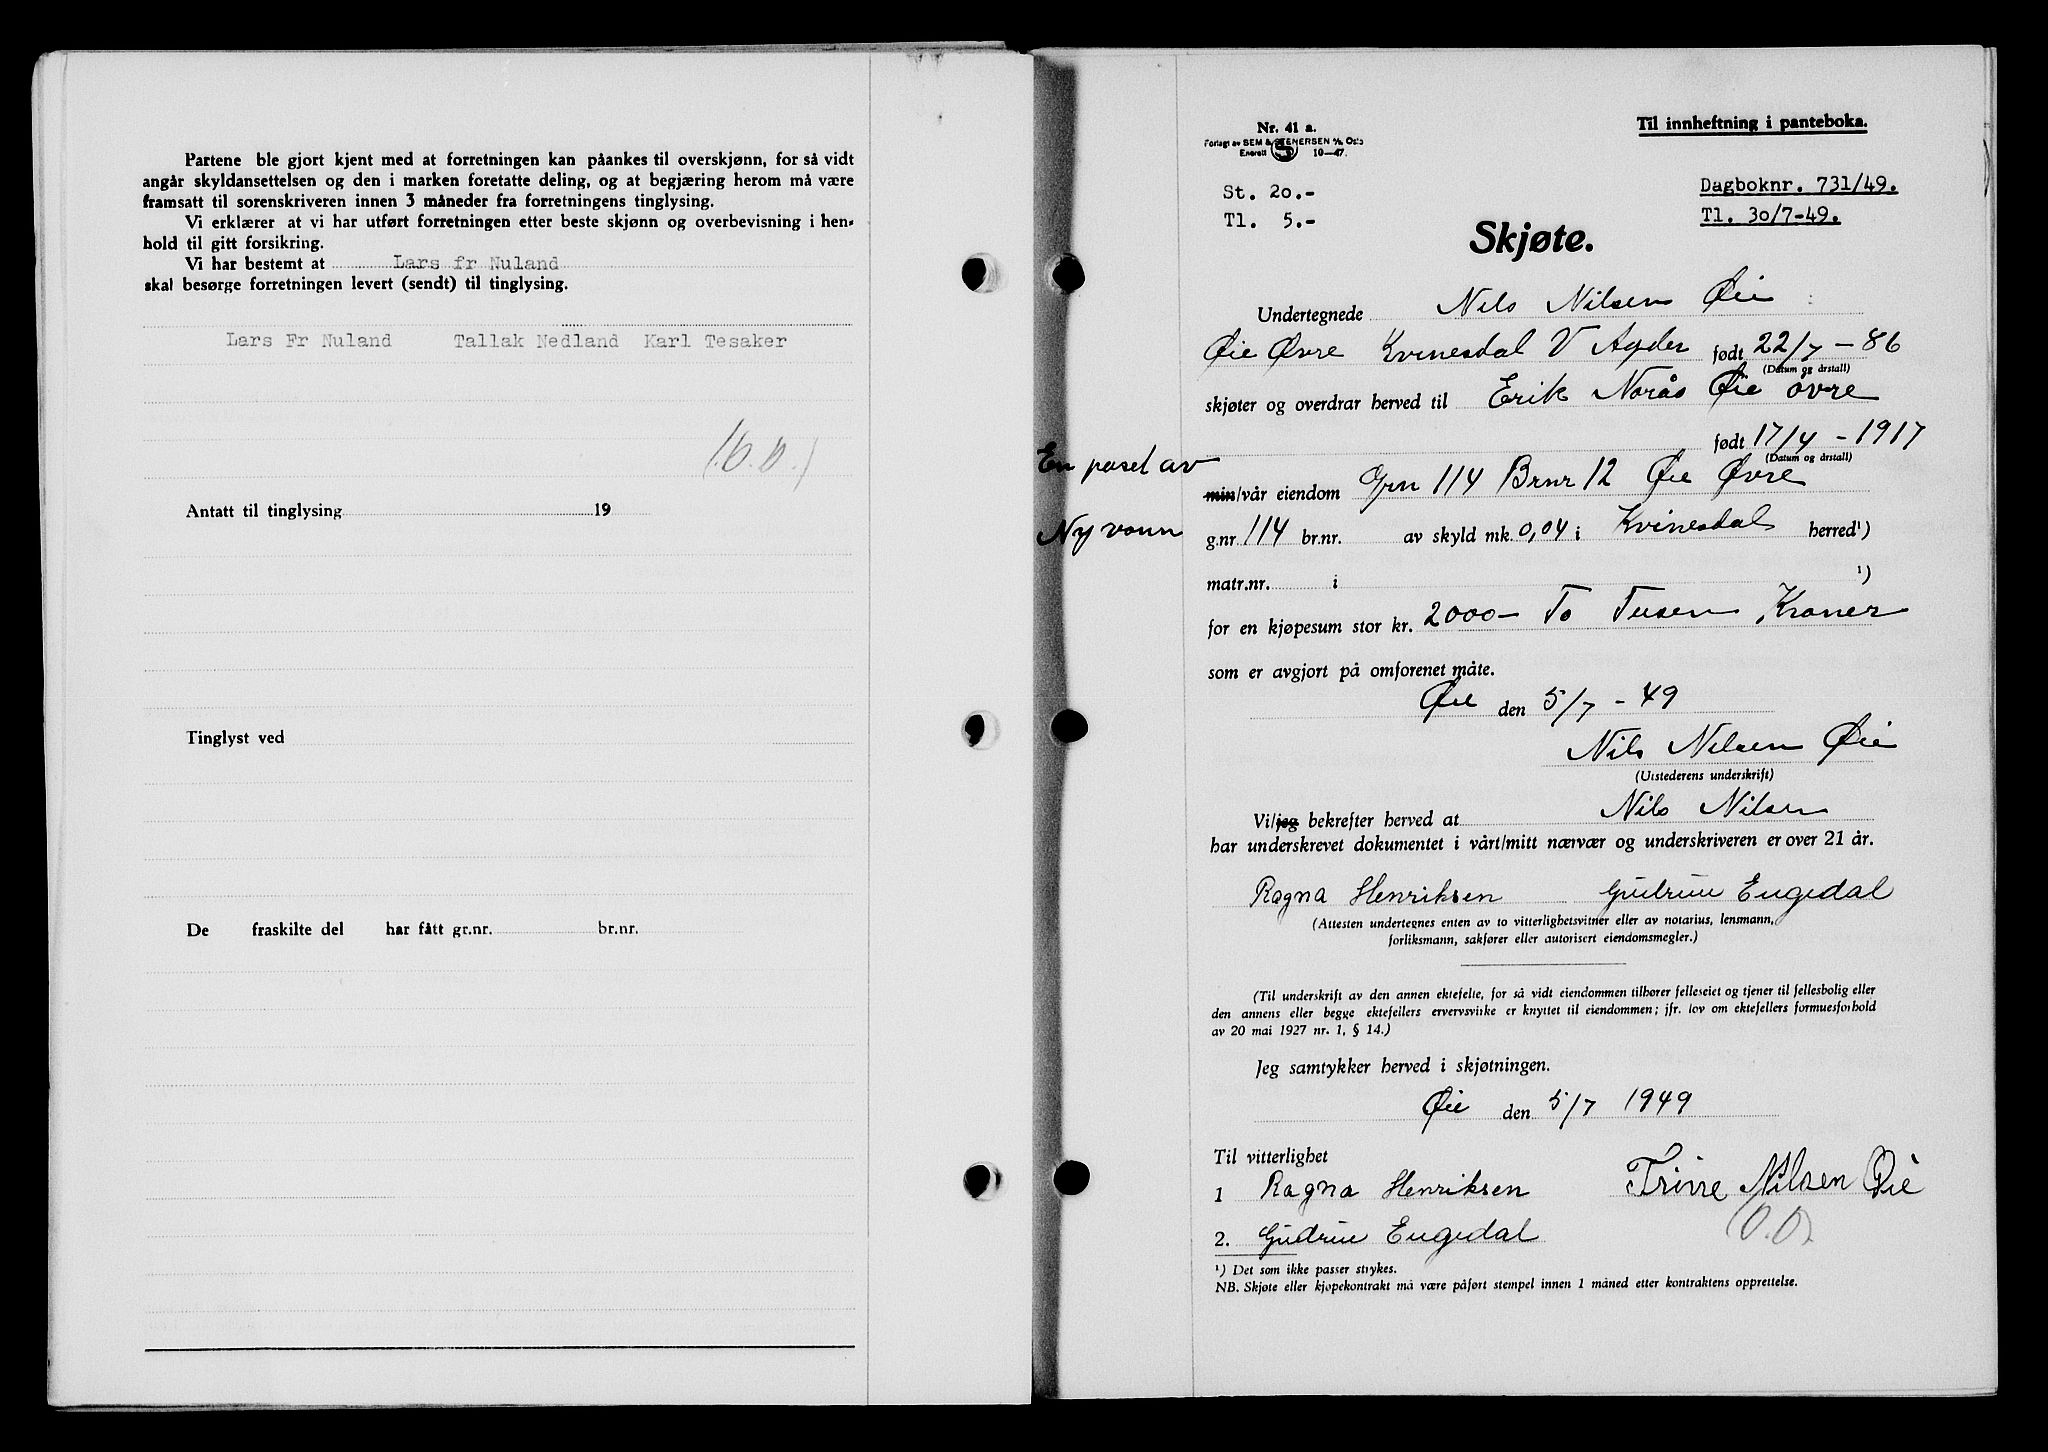 Partene ble gjort kjent med at forretningen kan påankes til overskjønn, for så vidt
angår skyldansettelsen og den i marken foretatte deling, og at begjæring herom må være
framsatt til sorenskriveren innen 3 måneder fra forretningens tinglysing.
Vi erklærer at vi har utført forretningen etter beste skjønn og overbevisning i hen-
hold til gitt forsikring.
Vi har bestemt at Lars fr Nuland
skal besørge forretningen levert (sendt) til tinglysing.
Lars Fr Nuland Tallak Nedland Karl Tesaker
Antatt til tinglysing 19
Tinglyst ved
De fraskilte del har fått gr.nr. br.nr.
Nr. 41 a.
Forlagt av SEM & STENERSEN A/S Oslo
Enerett S 10-47.
Til innheftning i panteboka.
St. 20.-
Tl. 5.-
Dagboknr. 731/49.
Tl. 30/7-49.
Skjøte.
Undertegnede Nils Nilsen Øie
Øie Øvre Kvinesdal V Agder født 22/7-86
(Datum og årstall)
skjøter og overdrar herved til Erik Norås Øie øvre
født 17/4-1917
(Datum og årstall)
En pasel av
min/vår eiendom Grn 114 Brnr 12 Øie Øvre
Ny vonn
g.nr. 114 br.nr. av skyld mk. 0,04 i Kvinesdal herred¹)
matr.nr. i ¹)
for en kjøpesum stor kr. 2000- To Tusen Kroner
som er avgjort på omforenet måte.
Øie den 5/7-49
Nils Nilsen Øie
(Utstederens underskrift)
Vi/jeg bekrefter herved at Nils Nilsen
har underskrevet dokumentet i vårt/mitt nærvær og underskriveren er over 21 år.
Ragna Henriksen Gudrun Engedal
(Attesten undertegnes enten av to vitterlighetsvitner eller av notarius, lensmann,
forliksmann, sakfører eller autorisert eiendomsmegler.)
(Til underskrift av den annen ektefelle, for så vidt eiendommen tilhører felleseiet og tjener til fellesbolig eller
den annens eller begge ektefellers ervervsvirke er knyttet til eiendommen; jfr. lov om ektefellers formuesforhold
av 20 mai 1927 nr. 1, § 14.)
Jeg samtykker herved i skjøtningen.
Øie den 5/7 1949
Til vitterlighet
1 Ragna Henriksen Trine Nilsen Øie
2. Gudrun Engedal
¹) Det som ikke passer strykes.
NB. Skjøte eller kjøpekontrakt må være påført stempel innen 1 måned etter kontraktens opprettelse.